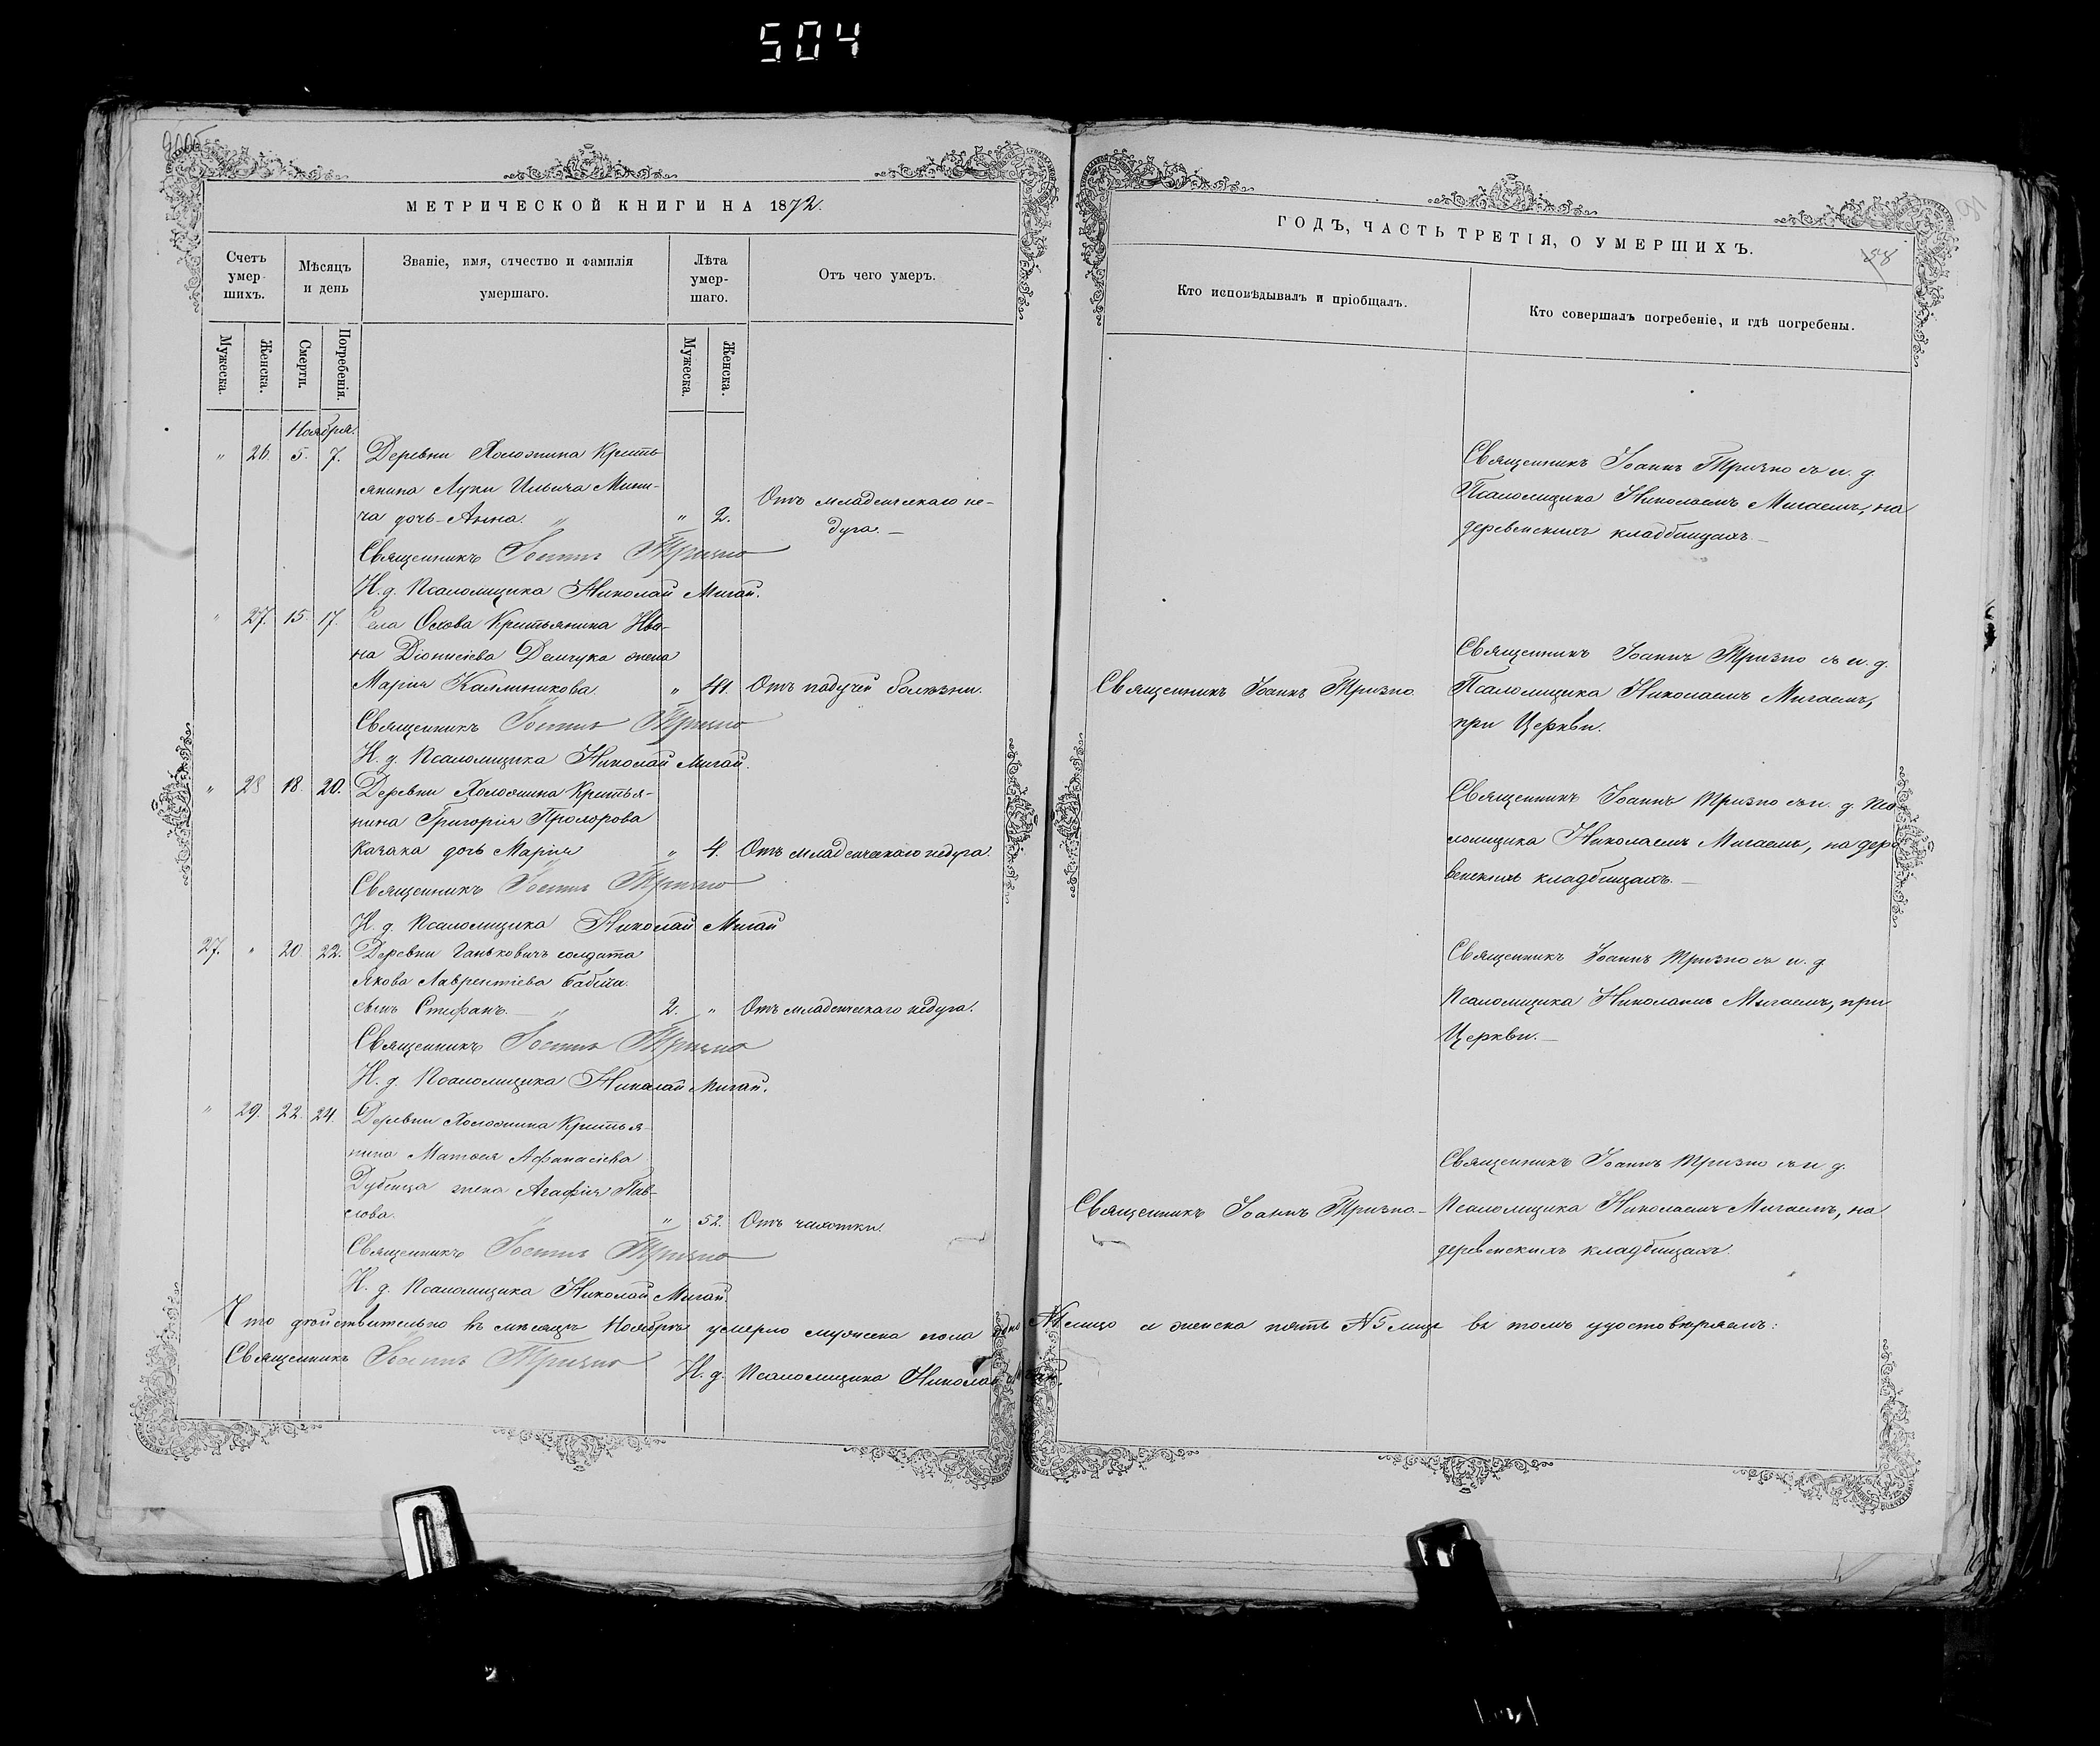 504
МЕТРИЧЕСКОЙ КНИГИ НА 1872.
Счетъ умер-шихъ.
Мѣсяцъ и день
Званіе, имя, отчество и фамилія умершаго.
Лѣта умер-шаго.
Отъ чего умеръ.
Мужеска.
Женска.
Смерти.
Погребенія.
Мужеска.
Женска.
Ноября.
" 26. 5. 7. Деревни Холожина Кресть-
янина Луки Ильича Мини-
ча дочь Анна. " " 2. Отъ младенческаго не-
дуга. —
Священникъ Іоаннъ Тризно
И. д. Псаломщика Николай Мигай.
" 27. 15. 17. Села Охова Крестьянина Ива-
на Діонисіева Демчука жена
Марія Каллиникова. " 41. Отъ падучей болѣзни.
Священникъ Іоаннъ Тризно
И. д. Псаломщика Николай Мигай.
" 28 18. 20. Деревни Холожина Крестья-
нина Григорія Прохорова
Казака дочь Марія " 4. Отъ младенческаго недуга.
Священникъ Іоаннъ Тризно
И. д. Псаломщика Николай Мигай
27. " 20. 22. Деревни Ганьковичъ солдата
Якова Лаврентіева Бабича
сынъ Стефанъ. — " 2. " Отъ младенческаго недуга.
Священникъ Іоаннъ Тризно
И. д. Псаломщика Николай Мигай.
" 29. 22. 24. Деревни Холожина Крестья-
нина Матѳея Афанасіева
Дубенца жена Агафія Пав-
лова. " " 52. Отъ чахотки.
Священникъ Іоаннъ Тризно
И. д. Псаломщика Николай Мигай.
Что действительно въ мѣсяцѣ Ноябрѣ умерло мужеска пола одно №1 лицо а женска пять №5 лицъ въ томъ удостовѣряемъ:
Священникъ Іоаннъ Тризно И. д. Псаломщика Николай Мигай.
ГОДЪ, ЧАСТЬ ТРЕТІЯ, О УМЕРШИХЪ.
58
Кто исповѣдывалъ и пріобщалъ.
Кто совершалъ погребеніе, и гдѣ погребены.
Священникъ Іоаннъ Тризно съ и. д.
Псаломщика Николаемъ Мигаемъ, на
деревенскихъ кладбищахъ. —
Священникъ Іоаннъ Тризно съ и. д.
Священникъ Іоаннъ Тризно. Псаломщика Николаемъ Мигаемъ,
при Церкви.
Священникъ Іоаннъ Тризно съ и. д. Пса-
ломщика Николаемъ Мигаемъ, на дере
венскихъ кладбищахъ. —
Священникъ Іоаннъ Тризно съ и. д.
Псаломщика Николаемъ Мигаемъ, при
Церкви. —
Священникъ Іоаннъ Тризно съ и д.
Священникъ Іоаннъ Тризно — Псаломщика Николаемъ Мигаемъ, на
деревенскихъ кладбищахъ.